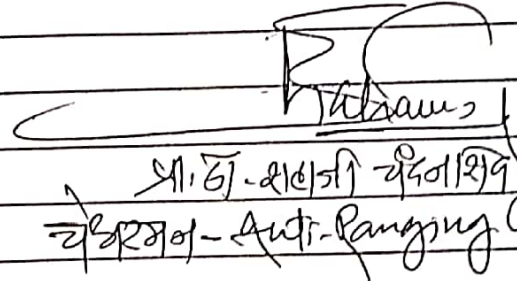 प्रा. डॉ. शहाजी चंदनशिवे
चेअरमन - Anti-Ranging